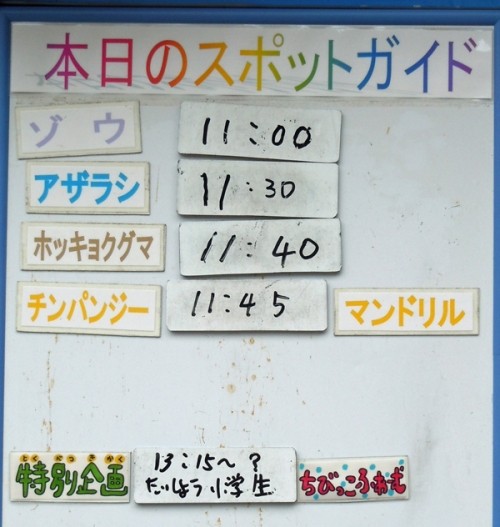 本日のスポットガイド
ゾウ 11:00
アザラシ 11:30
ホッキョクグマ 11:40
チンパンジー 11:45 マンドリル
とくべつきかく
特別企画 13:15〜? ちびっこふぁーむ
たいしょう 小学生